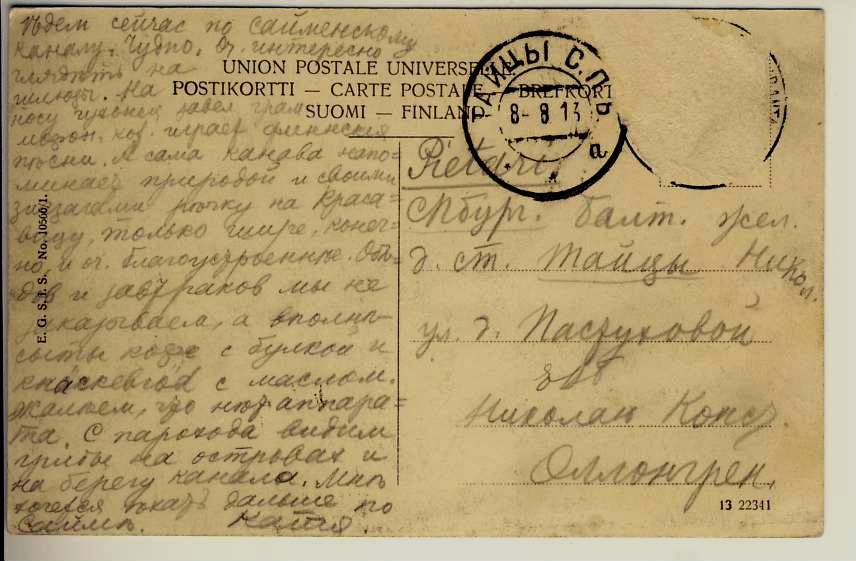 ѣдем сейчас по Сайменскому
каналу. Чудно. Оч. интересно
глядѣть на
шлюзы. На
носу чухонец завел грам
мофон, кот. играет финнския
пѣсни. А сама канава напо=
минает природой и своими
зигзагами рѣчку на Краса=
вицу, только шире, конеч=
но и оч. благоустроеннѣе. Обѣ=
дов и завтраков мы не
заказываем, а вполнѣ
сыты кофе с булкой и
knäckebröd с маслом.
Жалѣем, что нѣт аппара=
та. С парохода видим
грибы на островах и
на берегу канала. Мнѣ
хочется ѣхать дальше по
Саймѣ. Катя.
UNION POSTALE UNIVERSELLE
POSTIKORTTI — CARTE POSTALE — BREFKORT
SUOMI — FINLAND
ТАЙЦЫ С.ПБ
8- 8 13
а
E. G. S. i. S. No. 10560/1.
Pietari
СПбург. Балт. жел.
д. ст. Тайцы Никол.
ул. д. Пастуховой
Николаю
Оллонгрен
13 22341